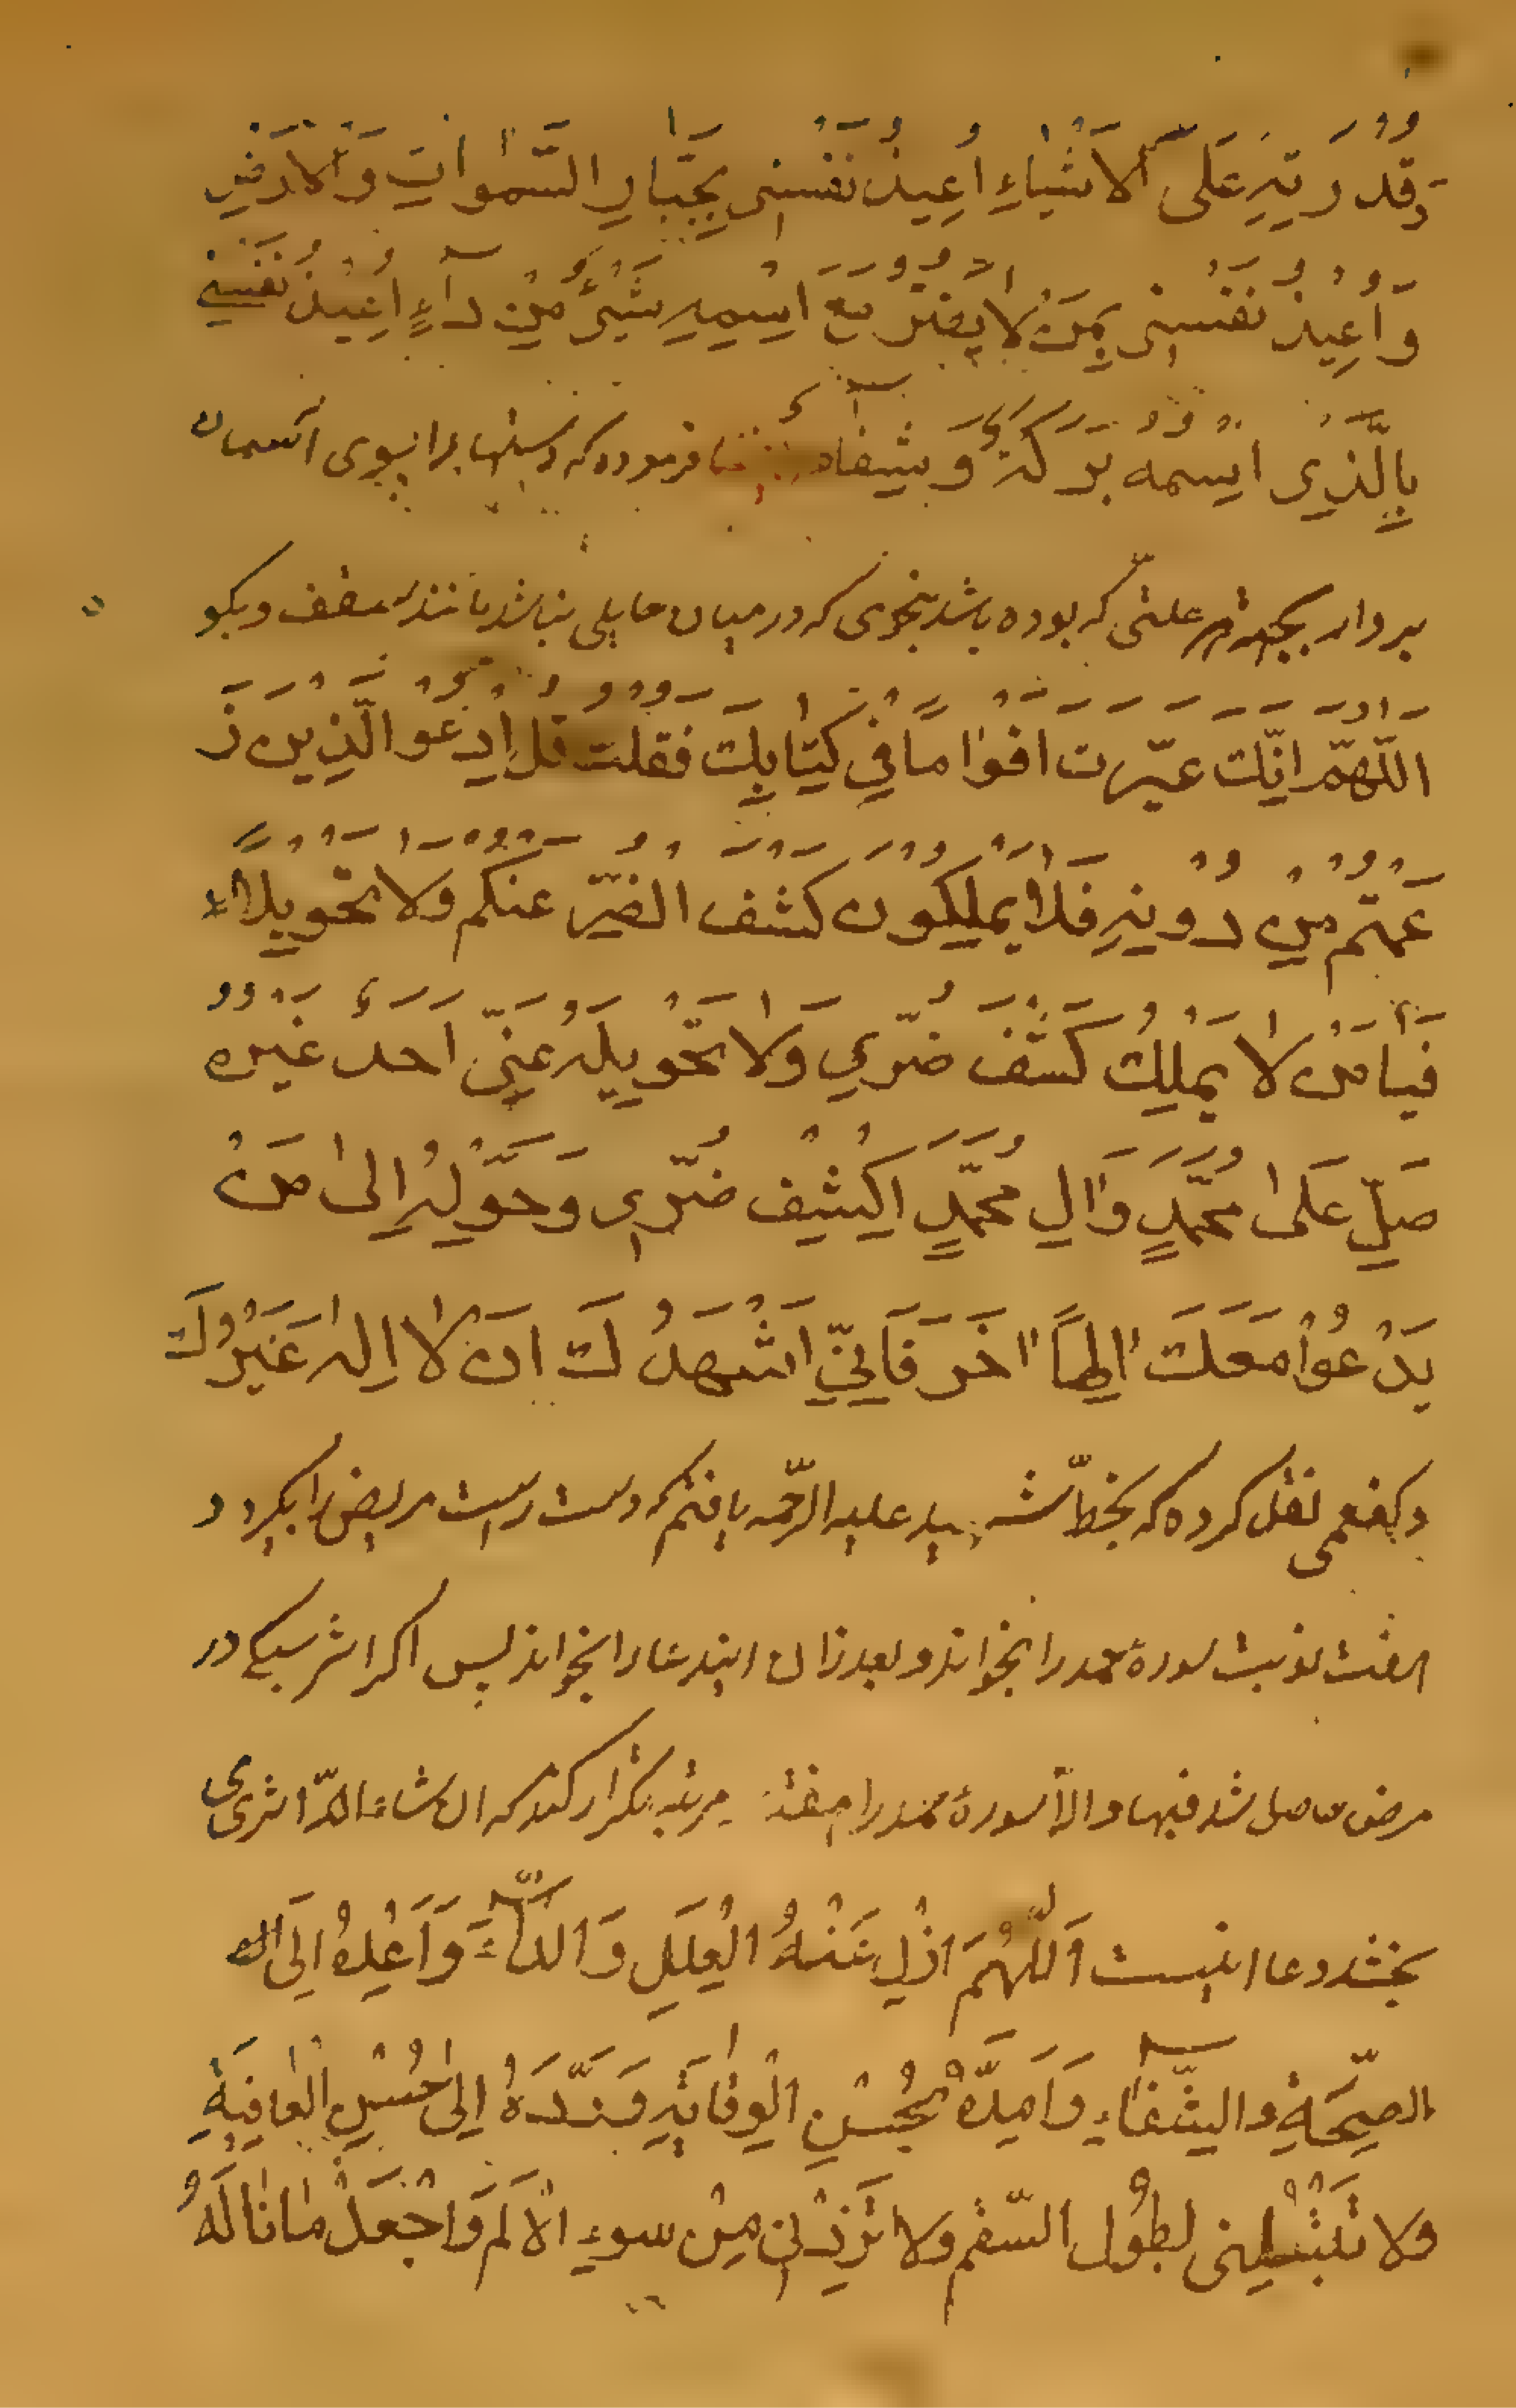 وَقُدْرَتِهِ عَلَى الْاَشْیَاءِ اُعِیذُ نَفْسِی بِجَبَّارِ السَّمٰوَاتِ وَالْاَرَضِ
وَاُعِیذُ نَفْسِی بِمَنْ لَا یَضُرُّ مَعَ اسْمِهِ شَیْءٌ مِنْ دَآءٍ اُعِیْذُ نَفْسِی
بِالَّذِی اسْمُهُ بَرَكَةٌ وَ شِفَآءٌ فرموده که دستها برا بسوی اسمان
بردار بجهة هر علتی که بوده باشد بنحوی که در میان حایلی نباشد مانند سقف و بکو
اَللّٰهُمَّ اِنَّكَ عَیَّرْتَ اَقْوَامًا فِی کِتَابِكَ فَقُلْتَ قُلِ ادْعُوا الَّذِینَ زَ
عَمْتُمْ مِنْ دُوْنِهِ فَلَا یَمْلِکُونَ کَشْفَ الضُّرِّ عَنْکُمْ وَلَا تَحْوِیْلًا
فَیَا مَنْ لَا یَمْلِكُ کَشْفَ ضُرِّی وَلَا تَحْوِیلَهُ عَنِّی اَحَدٌ غَیْرُهُ
صَلِّ عَلٰی مُحَمَّدٍ وَاٰلِ مُحَمَّدٍ اِکْشِفْ ضُرِّی وَحَوِّلْهُ اِلٰی مَنْ
یَدْعُوْا مَعَكَ اِلٰهًا اٰخَرَ فَاِنِّی اَشْهَدُ لَكَ اَنْ لَا اِلٰهَ غَیْرُكَ
و کفعمی نقل کرده که بخطّ شهید علیه الرّحمه یافتم که دست راست مریض را بکیرد و
هفت نوبت سورهٔ حمد را بخواند و بعد زان ایندعا را بخواند پس اکر اثر سبکی در
مرض حاصل شد فبها و الّا سورهٔ حمد را هفتاد مرتبه تکرار کند که ان شاء اللّه اثری می
بخشد دعا اینست اَللّٰهُمَّ اَزِلْ عَنْهُ الْعِلَلِ وَالدَّآءَ وَاَعِدْهُ اِلَی
الصِّحَّةِ وَالشِّفَآءِ وَاَمِدَّهُ بِحُسْنِ الْوِقَایَةِ وَرَدَّهُ اِلٰی حُسْنِ الْعَافِیَةِ
ولا تبتلینی لطول السّقم ولا مِنْ سوءِ الْاَلَمِ وَاجْعَلْ مَا نَالَهُ